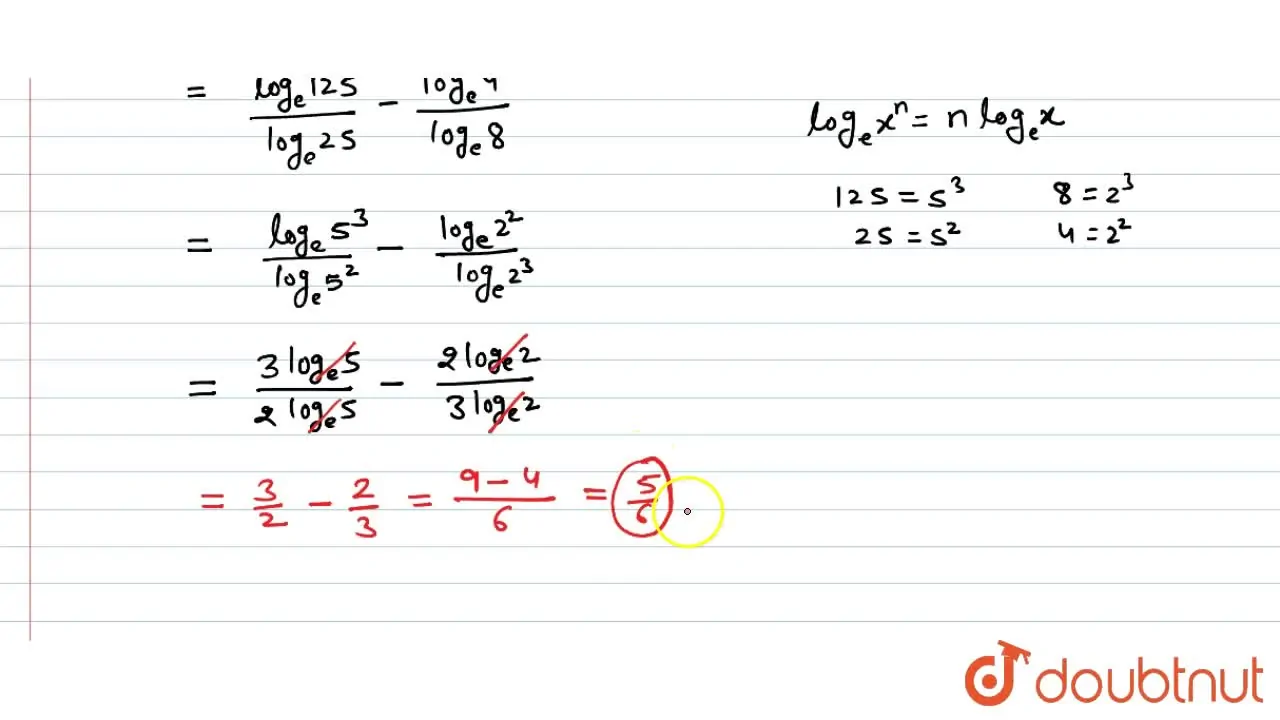 = logₑ125/logₑ25 − logₑ4/logₑ8
logₑxⁿ = n logₑx
125 = 5³ 8 = 2³
25 = 5² 4 = 2²
= logₑ5³/logₑ5² − logₑ2²/logₑ2³
= 3 logₑ5/2 logₑ5 − 2 logₑ2/3 logₑ2
= 3/2 − 2/3 = 9 − 4/6 = 5/6
doubtnut